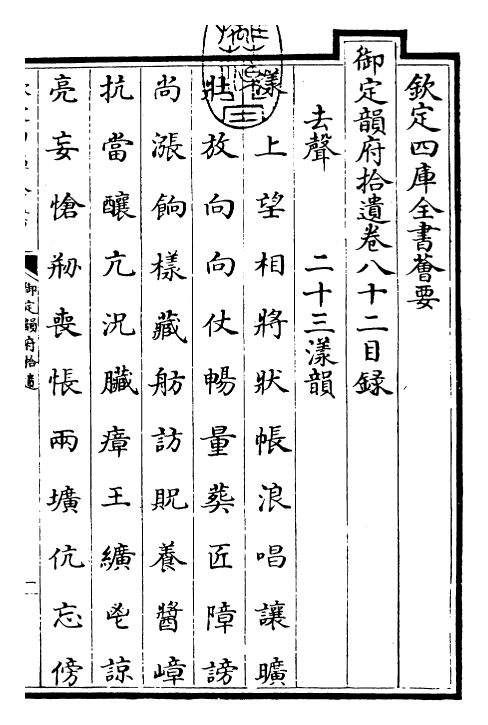 欽定四庫全書薈要
御定韻府拾遺卷八十二目録
去聲 二十三漾韻
漾上望相將狀帳浪唱讓曠
壯放向向仗暢量葬匠障謗
尚漲餉樣藏舫訪貺養醬嶂
抗當釀亢況臟瘴王纊鬯諒
亮妄愴剙喪悵兩壙伉忘傍
御定韻府拾遺
一